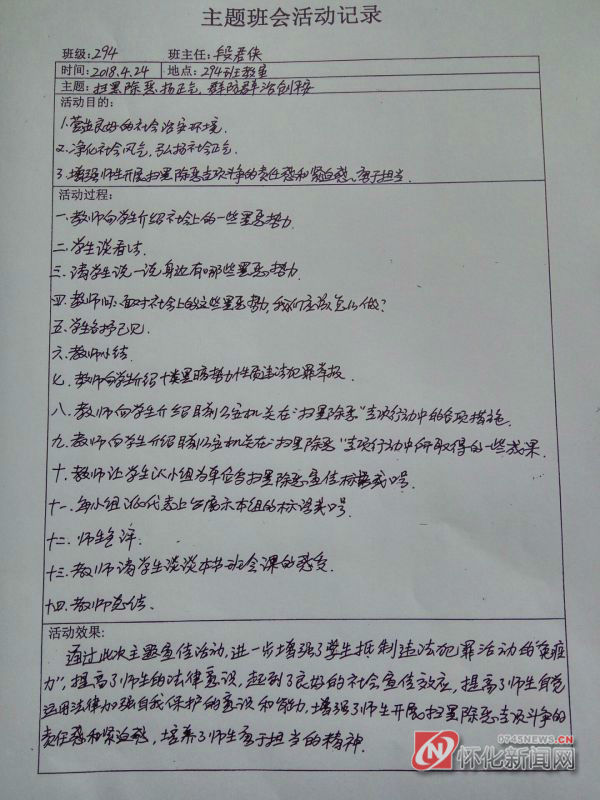 主题班会活动记录
班级:294 班主任:段君侠
时间:2018.4.24 地点:294班教室
主题:扫黑除恶扬正气,群防群治创平安
活动目的:
1.营造良好的社会治安环境.
2.净化社会风气,弘扬社会正气.
3.增强师生开展扫黑除恶专项斗争的责任感和紧迫感、勇于担当.
活动过程:
一.教师向学生介绍社会上的一些黑恶势力.
二.学生谈看法.
三.请学生说一说身边有哪些黑恶势力.
四.教师问:面对社会上的这些黑恶势力,我们应该怎么做?
五.学生各抒己见.
六.教师小结.
七.教师向学生介绍十类黑恶势力性质违法犯罪举报.
八.教师向学生介绍目前公安机关在"扫黑除恶"专项行动中的各项措施.
九.教师向学生介绍目前公安机关在"扫黑除恶"专项行动中所取得的一些成果.
十.教师让学生以小组为单位写扫黑除恶宣传标语或口号.
十一.每小组派代表上台展示本组的标语或口号.
十二.师生点评.
十三.教师请学生谈谈本节班会课的感受.
十四.教师总结.
活动效果:
通过此次主题宣传活动,进一步增强了学生抵制违法犯罪活动的"免疫
力",提高了师生的法律意识,起到了良好的社会宣传效应,提高了师生自觉
运用法律加强自我保护的意识和能力,增强了师生开展扫黑除恶专项斗争的
责任感和紧迫感,培养了师生勇于担当的精神.
0745NEWS.CN
怀化新闻网